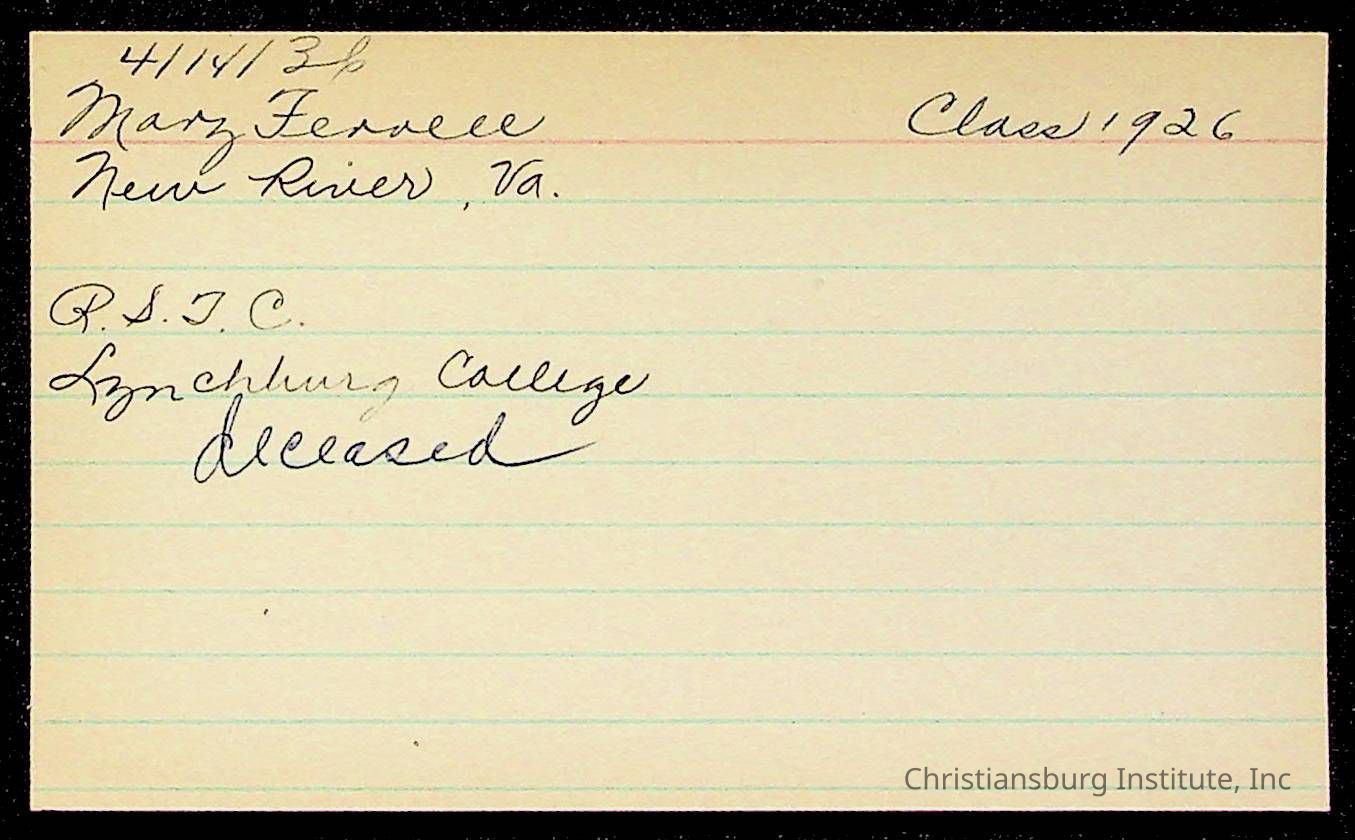 4/14/36
Mary Ferrell Class 1926
New River, Va.
R.S.T.C.
Lynchburg College
deceased
Christiansburg Institute, Inc